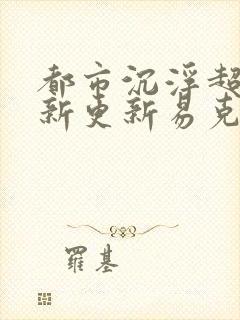 都市沉浮超
新更新易克
羅基